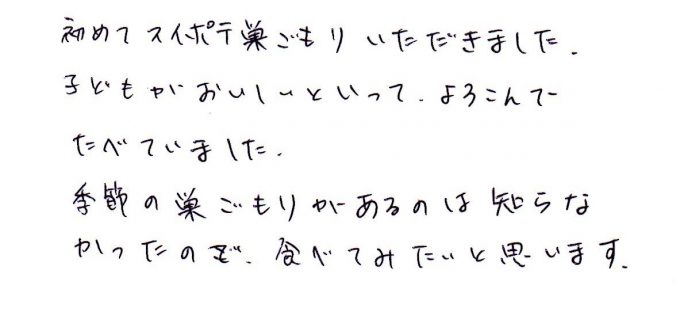 初めて スイポテ巣ごもり いただきました.
子どもが おいしいといって. よろこんで
たべていました.
季節の巣ごもりがあるのは 知らな
かったので. 食べてみたいと思います.